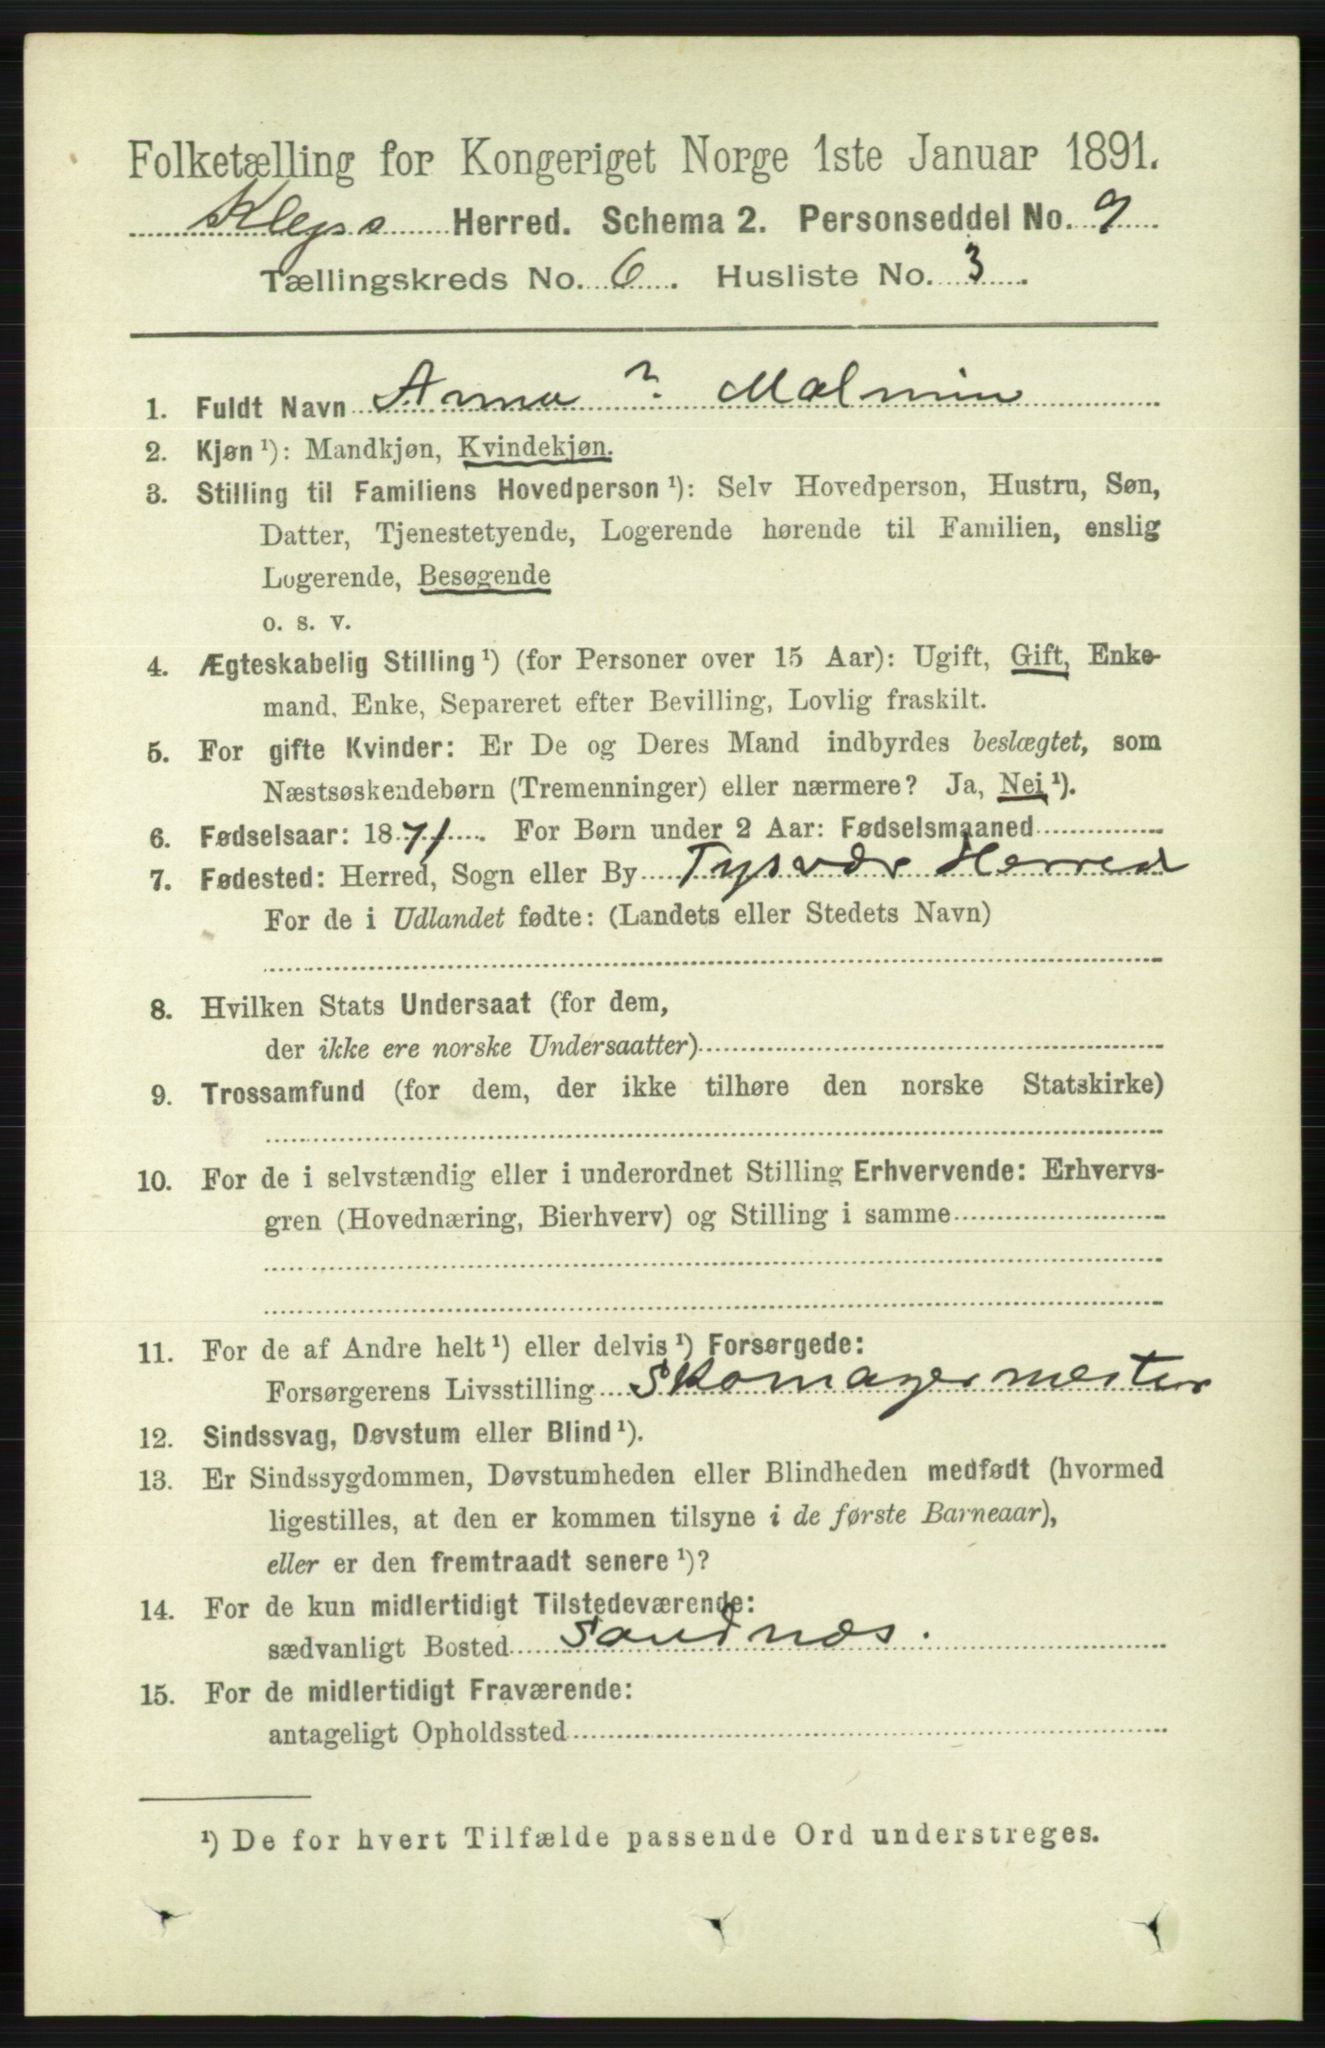 Folketælling for Kongeriget Norge 1ste Januar 1891.
Klepps Herred. Schema 2. Personseddel No. 9
Tællingskreds No. 6. Husliste No. 3.
1. Fuldt Navn Anna ? Malmin
2. Kjøn ¹): Mandkjøn, Kvindekjøn.
3. Stilling til Familiens Hovedperson ¹): Selv Hovedperson, Hustru, Søn,
Datter, Tjenestetyende, Logerende hørende til Familien, enslig
Logerende, Besøgende
o. s. v.
4. Ægteskabelig Stilling ¹) (for Personer over 15 Aar): Ugift, Gift, Enke-
mand, Enke, Separeret efter Bevilling, Lovlig fraskilt.
5. For gifte Kvinder: Er De og Deres Mand indbyrdes beslægtet, som
Næstsøskendebørn (Tremenninger) eller nærmere? Ja, Nei ¹).
6. Fødselsaar: 1871. For Børn under 2 Aar: Fødselsmaaned
7. Fødested: Herred, Sogn eller By Tysvær Herred
For de i Udlandet fødte: (Landets eller Stedets Navn)
8. Hvilken Stats Undersaat (for dem,
der ikke ere norske Undersaatter)
9. Trossamfund (for dem, der ikke tilhøre den norske Statskirke)
10. For de i selvstændig eller i underordnet Stilling Erhvervende: Erhvervs-
gren (Hovednæring, Bierhverv) og Stilling i samme
11. For de af Andre helt ¹) eller delvis ¹) Forsørgede:
Forsørgerens Livsstilling Skomagermester
12. Sindssvag, Døvstum eller Blind ¹).
13. Er Sindssygdommen, Døvstumheden eller Blindheden medfødt (hvormed
ligestilles, at den er kommen tilsyne i de første Barneaar),
eller er den fremtraadt senere ¹)?
14. For de kun midlertidigt Tilstedeværende:
sædvanligt Bosted Sandnæs.
15. For de midlertidigt Fraværende:
antageligt Opholdssted
¹) De for hvert Tilfælde passende Ord understreges.